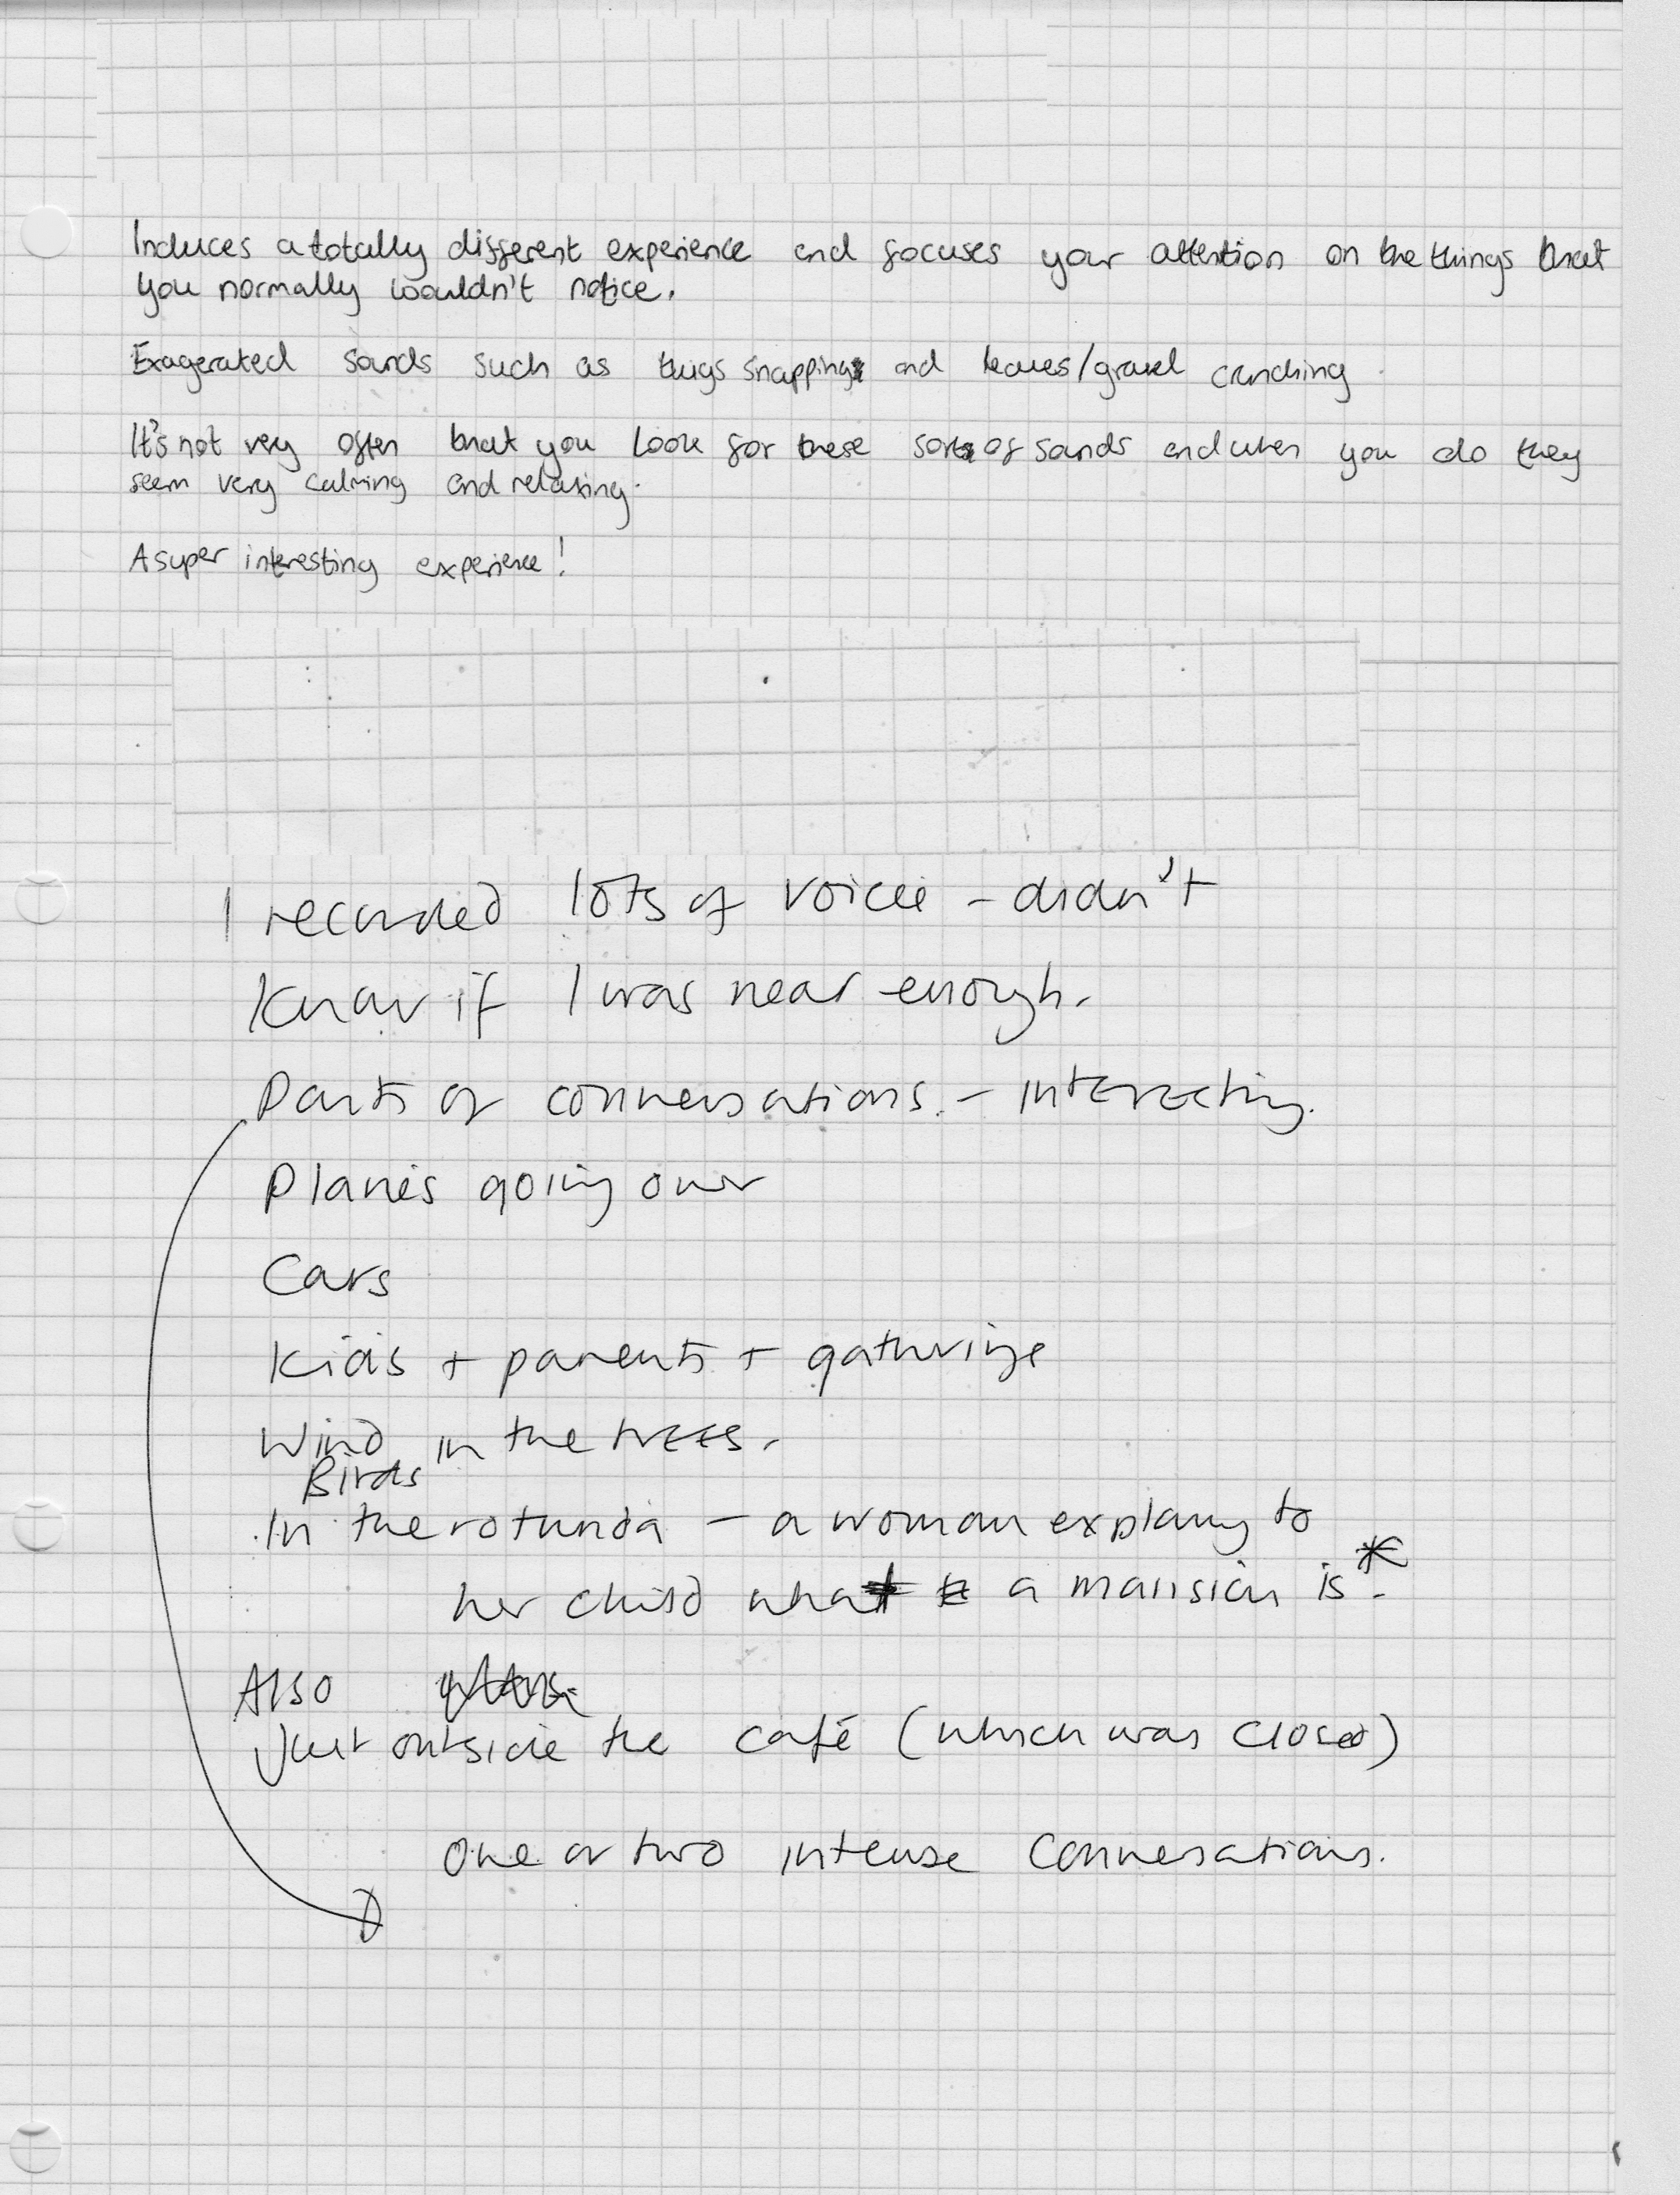 Induces a totally different experience and focuses your attention on the things that
you normally wouldn't notice.
Exagerated sounds such as twigs snapping and leaves/gravel crunching
It's not very often that you look for these sorts of sounds and when you do they
seem very calming and relaxing.
A super interesting experience!
I recorded lots of voices – didn't
know if I was near enough.
Parts of conversations. – interesting.
Planes going over
Cars
Kids + parents + gatherings
Wind in the trees.
Birds
In the rotunda – a woman explaing to
her child what a mansion is* -
Also
Just outside the café (which was closed)
One or two intense conversations.